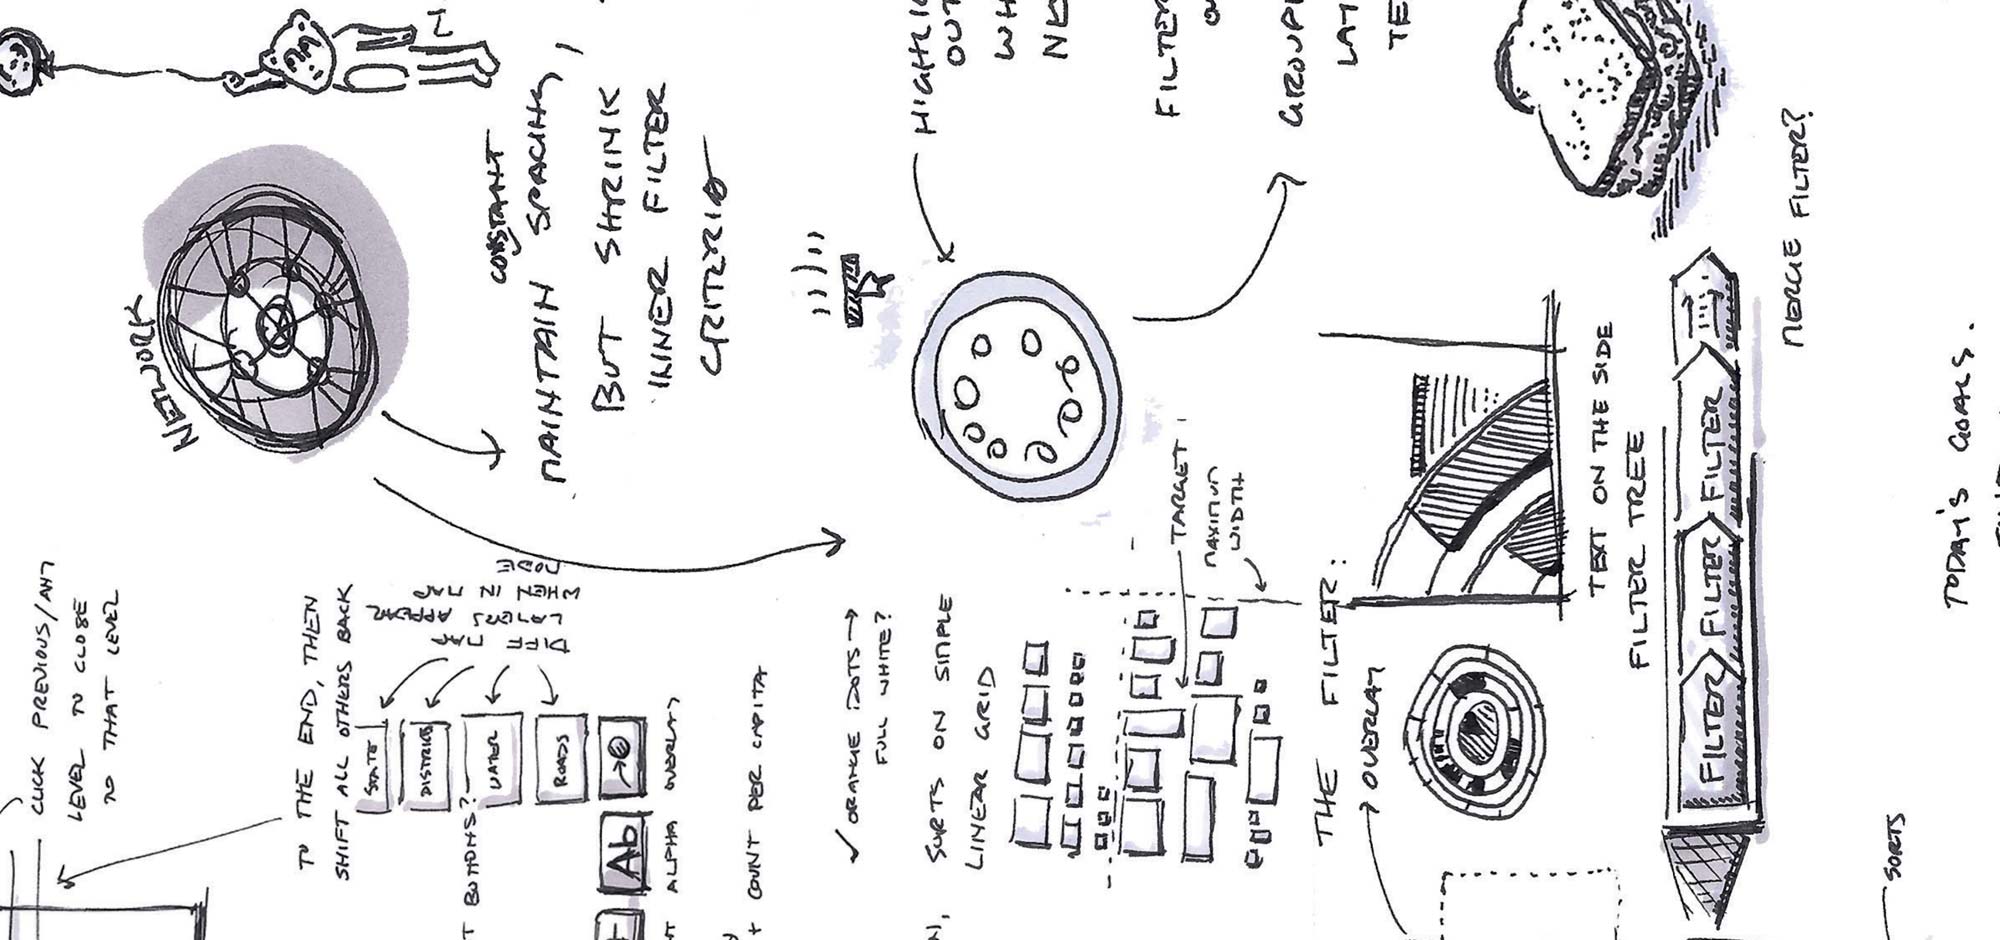 NETWORK
CONSTANT
MAINTAIN SPACING,
BUT SHRINK
INNER FILTER
CRITERIA
HIGHLIG
OUT
WH
FILTER
GROUPI
LAY
TE
MERGE FILTER?
CLICK PREVIOUS/ANY
LEVEL TO CLOSE
TO THAT LEVEL
TO THE END, THEN
SHIFT ALL OTHERS BACK
DIFF MAP
LAYERS APPEAR
WHEN IN MAP
MODE
STATE
DISTRICTS
WATER
ROADS
BUTTONS?
Ab
ALPHA OVERLAY
+ COUNT PER CAPITA
✓ ORANGE DOTS →
FULL WHITE?
SORTS ON SIMPLE
LINEAR GRID
TARGET
MAXIMUM
WIDTH
THE FILTER:
→ OVERLAY
TEXT ON THE SIDE
FILTER TREE
FILTER
FILTER
FILTER
TODAY'S GOALS.
SORTS